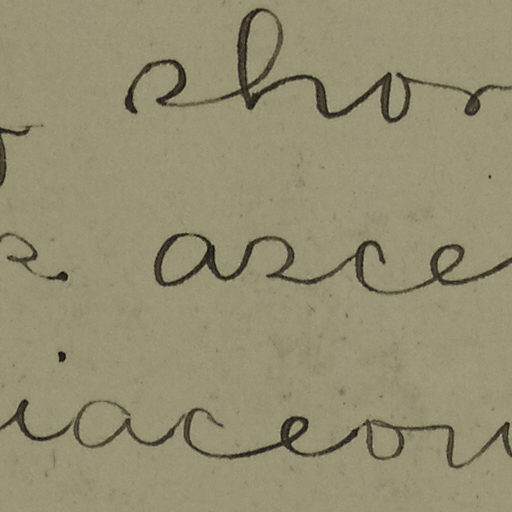 shor
s. asce
iaceou